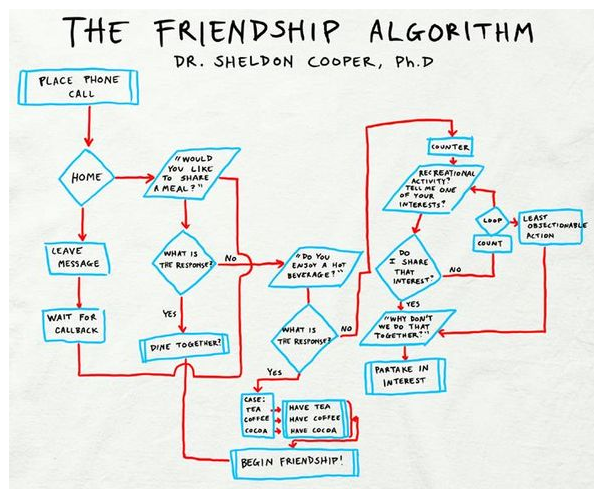 THE FRIENDSHIP ALGORITHM
DR. SHELDON COOPER, Ph.D
PLACE PHONE
CALL
HOME
"WOULD
YOU LIKE
TO SHARE
A MEAL?"
LEAVE
MESSAGE
WAIT FOR
CALLBACK
WHAT IS
THE RESPONSE?
NO
YES
DINE TOGETHER?
"DO YOU
ENJOY A HOT
BEVERAGE?"
WHAT IS
THE RESPONSE?
NO
YES
CASE:
TEA
COFFEE
COCOA
HAVE TEA
HAVE COFFEE
HAVE COCOA
BEGIN FRIENDSHIP!
COUNTER
RECREATIONAL
ACTIVITY?
TELL ME ONE
OF YOUR
INTERESTS?
LOOP
COUNT
LEAST
OBJECTIONABLE
ACTION
DO
I SHARE
THAT
INTEREST?
NO
YES
"WHY DON'T
WE DO THAT
TOGETHER?"
PARTAKE IN
INTEREST